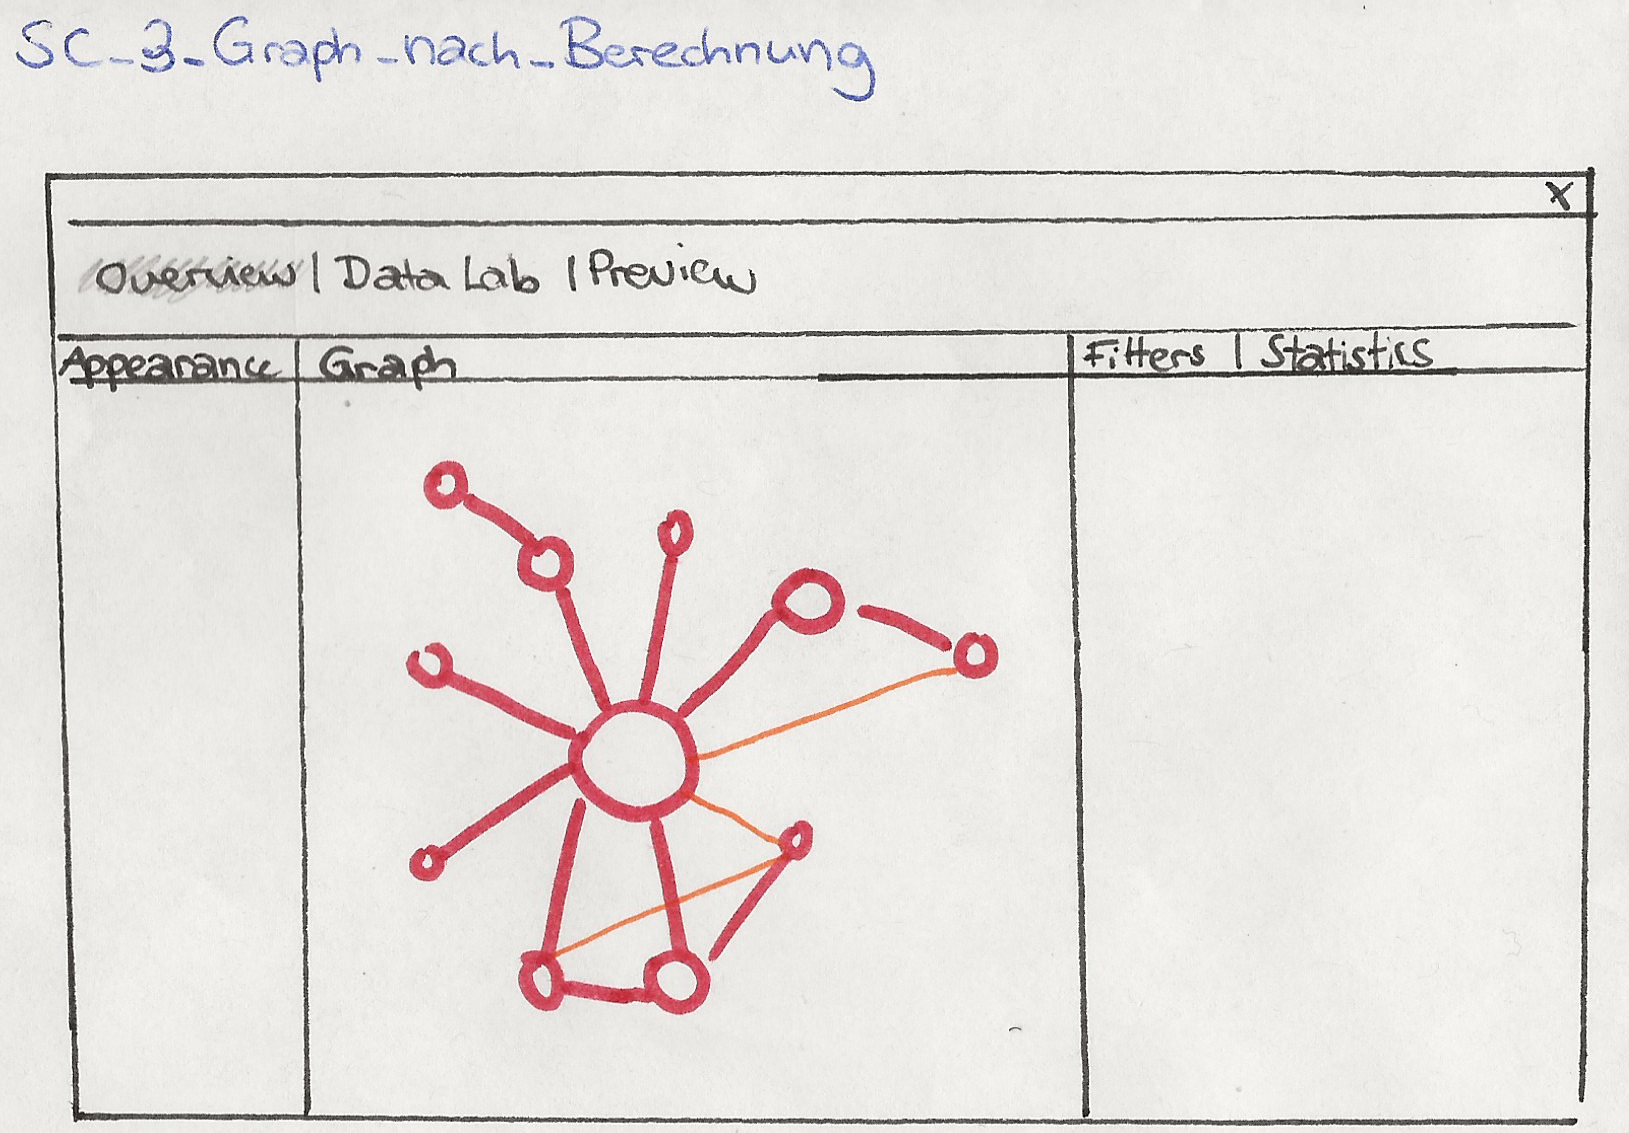 SC_3_Graph_nach_Berechnung
X
Overview | Data Lab | Preview
Appearance | Graph | Filters | Statistics